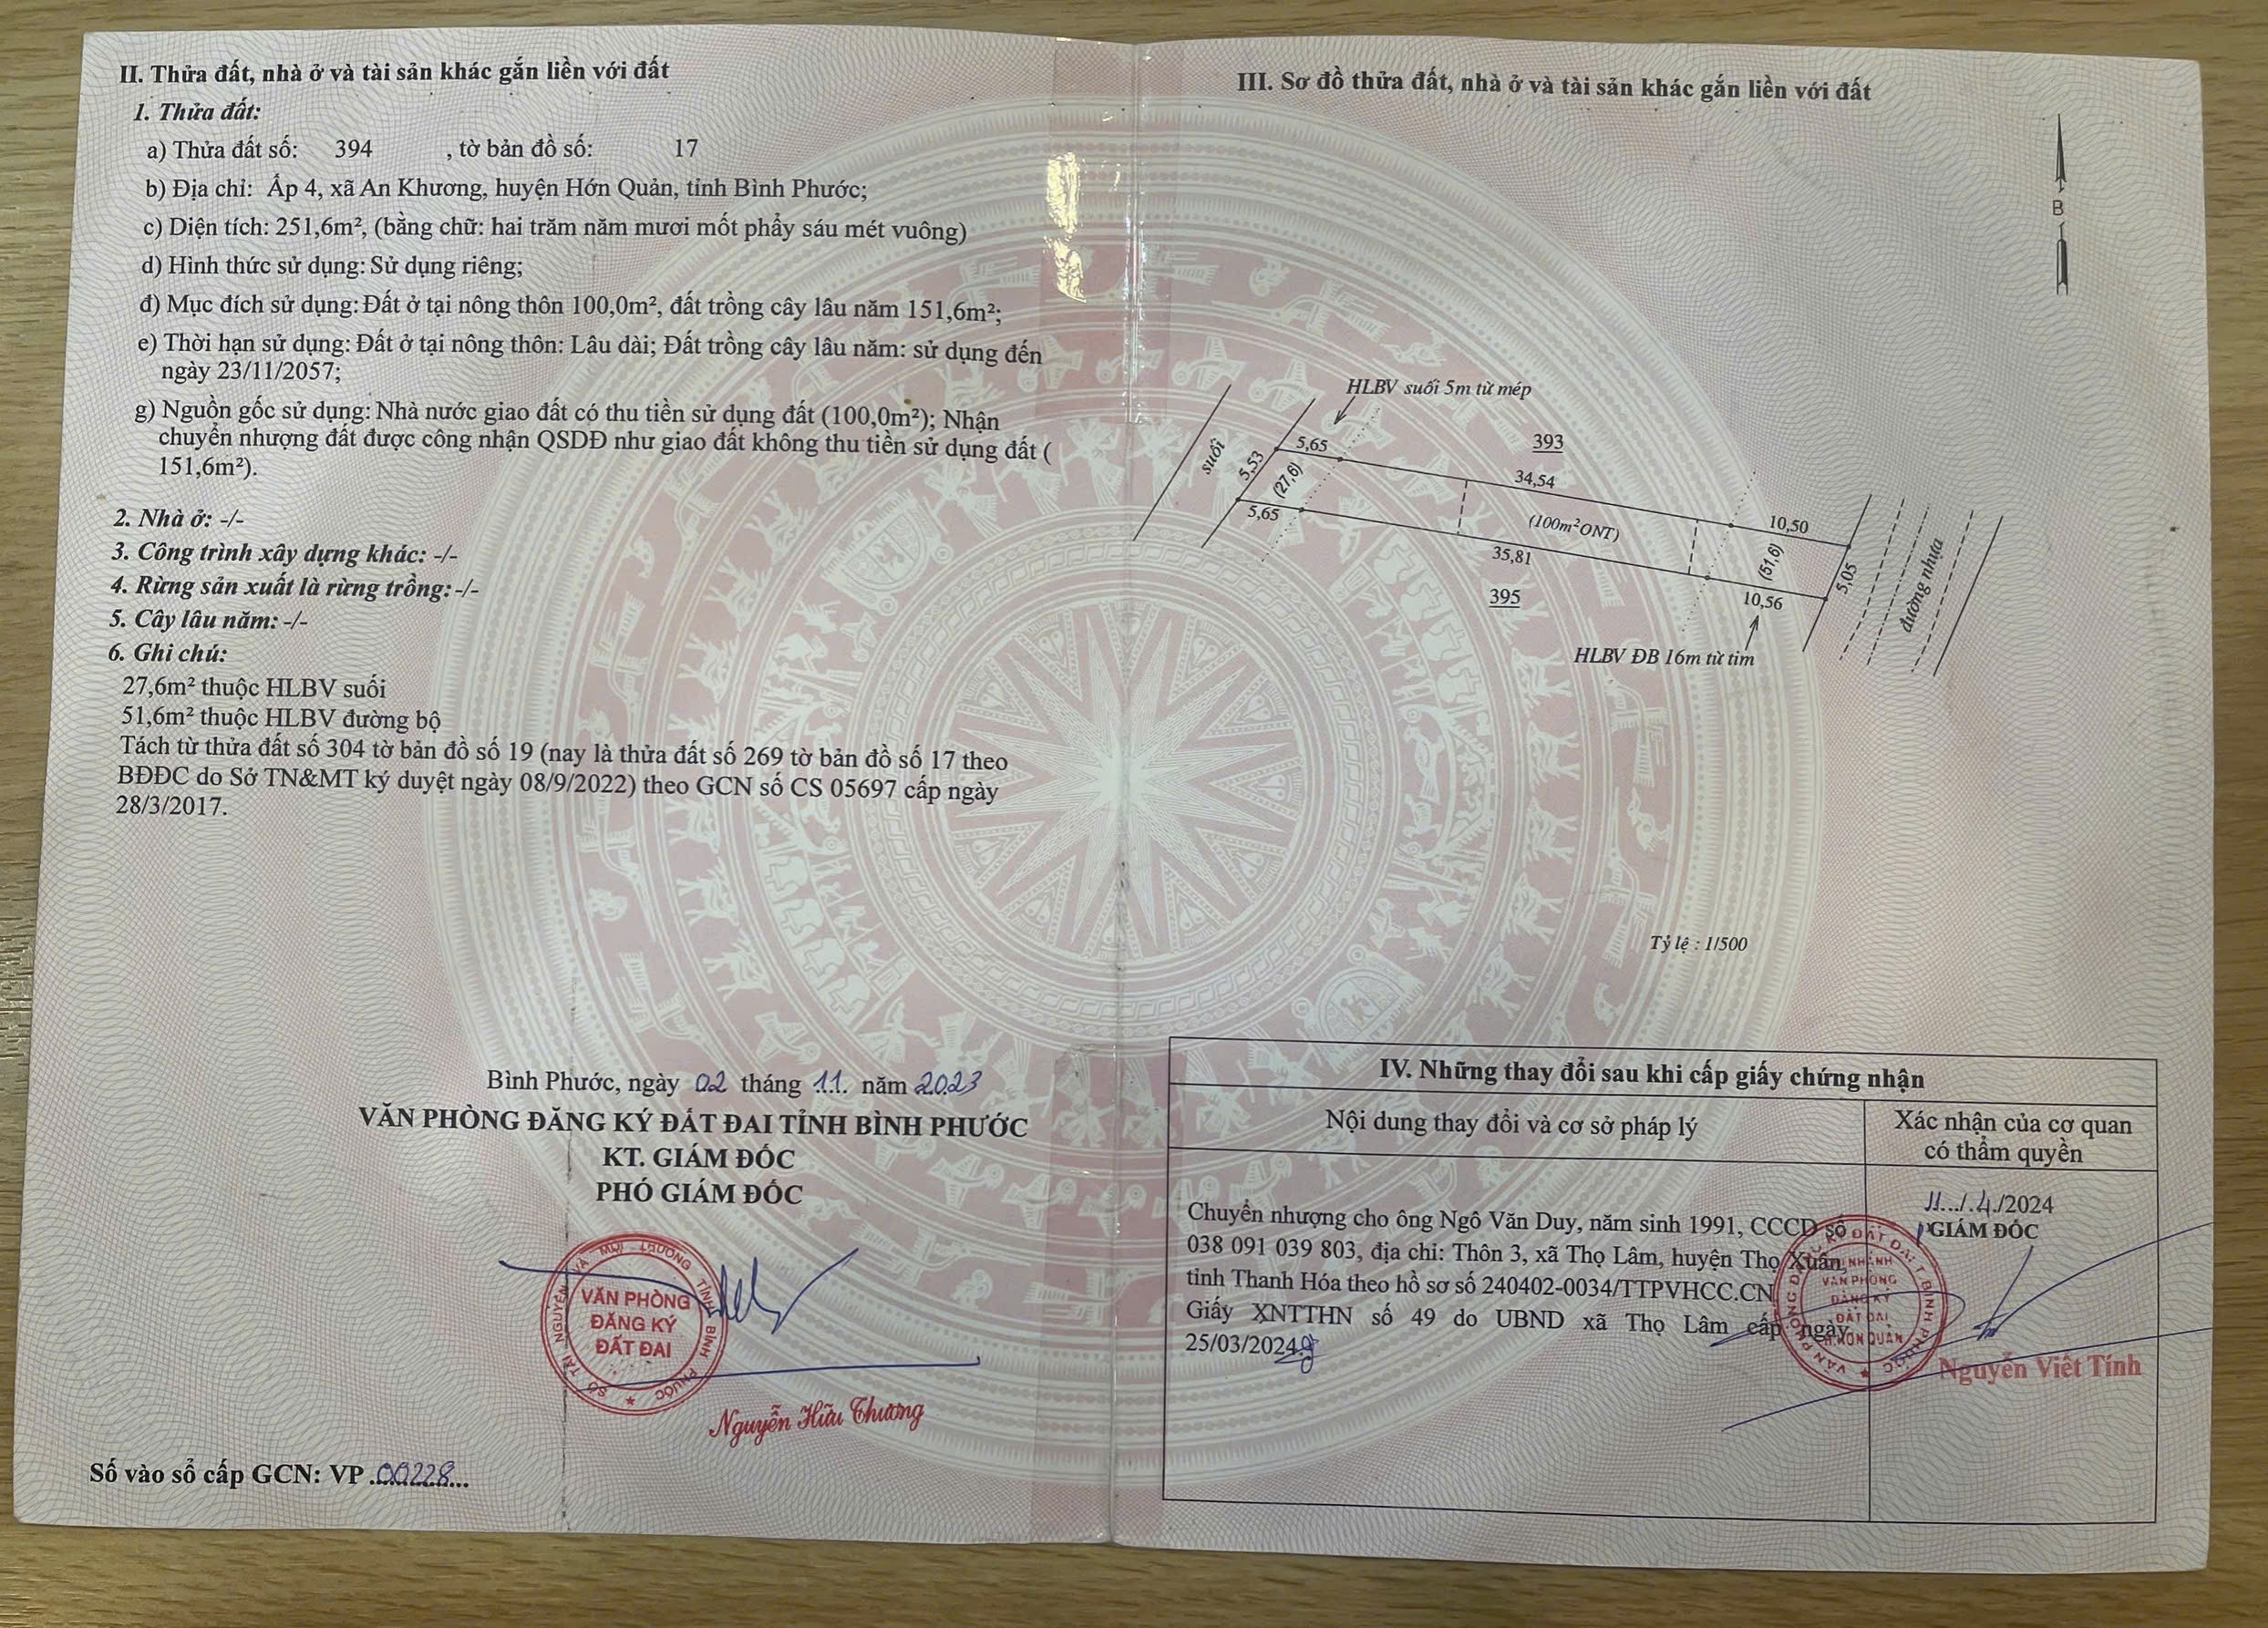 II. Thửa đất, nhà ở và tài sản khác gắn liền với đất
1. Thửa đất:
a) Thửa đất số: 394 , tờ bản đồ số: 17
b) Địa chỉ: Ấp 4, xã An Khương, huyện Hớn Quản, tỉnh Bình Phước;
c) Diện tích: 251,6m², (bằng chữ: hai trăm năm mươi mốt phẩy sáu mét vuông)
d) Hình thức sử dụng: Sử dụng riêng;
đ) Mục đích sử dụng: Đất ở tại nông thôn 100,0m², đất trồng cây lâu năm 151,6m²;
e) Thời hạn sử dụng: Đất ở tại nông thôn: Lâu dài; Đất trồng cây lâu năm: sử dụng đến
ngày 23/11/2057;
g) Nguồn gốc sử dụng: Nhà nước giao đất có thu tiền sử dụng đất (100,0m²); Nhận
chuyển nhượng đất được công nhận QSDĐ như giao đất không thu tiền sử dụng đất (
151,6m²).
2. Nhà ở: -/-
3. Công trình xây dựng khác: -/-
4. Rừng sản xuất là rừng trồng: -/-
5. Cây lâu năm: -/-
6. Ghi chú:
27,6m² thuộc HLBV suối
51,6m² thuộc HLBV đường bộ
Tách từ thửa đất số 304 tờ bản đồ số 19 (nay là thửa đất số 269 tờ bản đồ số 17 theo
BĐĐC do Sở TN&MT ký duyệt ngày 08/9/2022) theo GCN số CS 05697 cấp ngày
28/3/2017.
Bình Phước, ngày 02 tháng 11. năm 2023
VĂN PHÒNG ĐĂNG KÝ ĐẤT ĐAI TỈNH BÌNH PHƯỚC
KT. GIÁM ĐỐC
PHÓ GIÁM ĐỐC
SỞ TÀI NGUYÊN VÀ MÔI TRƯỜNG TỈNH BÌNH PHƯỚC
VĂN PHÒNG
ĐĂNG KÝ
ĐẤT ĐAI
Nguyễn Hữu Thương
Số vào sổ cấp GCN: VP 00228
III. Sơ đồ thửa đất, nhà ở và tài sản khác gắn liền với đất
B
HLBV suối 5m từ mép
suối
5,65
5,53
(27,6)
5,65
393
34,54
(100m²ONT)
35,81
395
10,50
(51,6)
5,05
10,56
đường nhựa
HLBV ĐB 16m từ tim
Tỷ lệ : 1/500
IV. Những thay đổi sau khi cấp giấy chứng nhận
Nội dung thay đổi và cơ sở pháp lý
Xác nhận của cơ quan
có thẩm quyền
Chuyển nhượng cho ông Ngô Văn Duy, năm sinh 1991, CCCD số
038 091 039 803, địa chỉ: Thôn 3, xã Thọ Lâm, huyện Thọ Xuân,
tỉnh Thanh Hóa theo hồ sơ số 240402-0034/TTPVHCC.CN
Giấy XNTTHN số 49 do UBND xã Thọ Lâm cấp ngày
25/03/2024
11/.4./2024
GIÁM ĐỐC
CHI NHÁNH
VĂN PHÒNG
ĐĂNG KÝ
ĐẤT ĐAI
H.HỚN QUẢN
Nguyễn Viết Tính